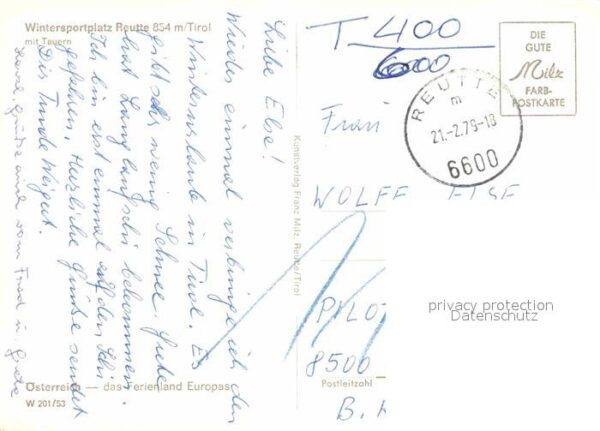 Wintersportplatz Reutte 854 m/Tirol
mit Tauern
Liebe Else!
Wieder einmal verbringe ich den
Winterurlaub in Tirol. Es
gibt sehr wenig Schnee.
hat Langlaufschi bekommen.
Ich bin erst einmal auf den Schi
gefallen. Herzliche Grüße sendet
Dir Trude Weigert.
Herzl. Grüße auch von Fred u. Grete
Österreich — das Ferienland Europas
W 201/53
Kunstverlag Franz Milz, Reutte/Tirol
T 400
600
DIE
GUTE
Milz
FARB-
POSTKARTE
REUTTE
m
21.-2.79-18
6600
Frau
WOLFF ELSE
PILO
8500
Postleitzahl
B.
privacy protection
Datenschutz